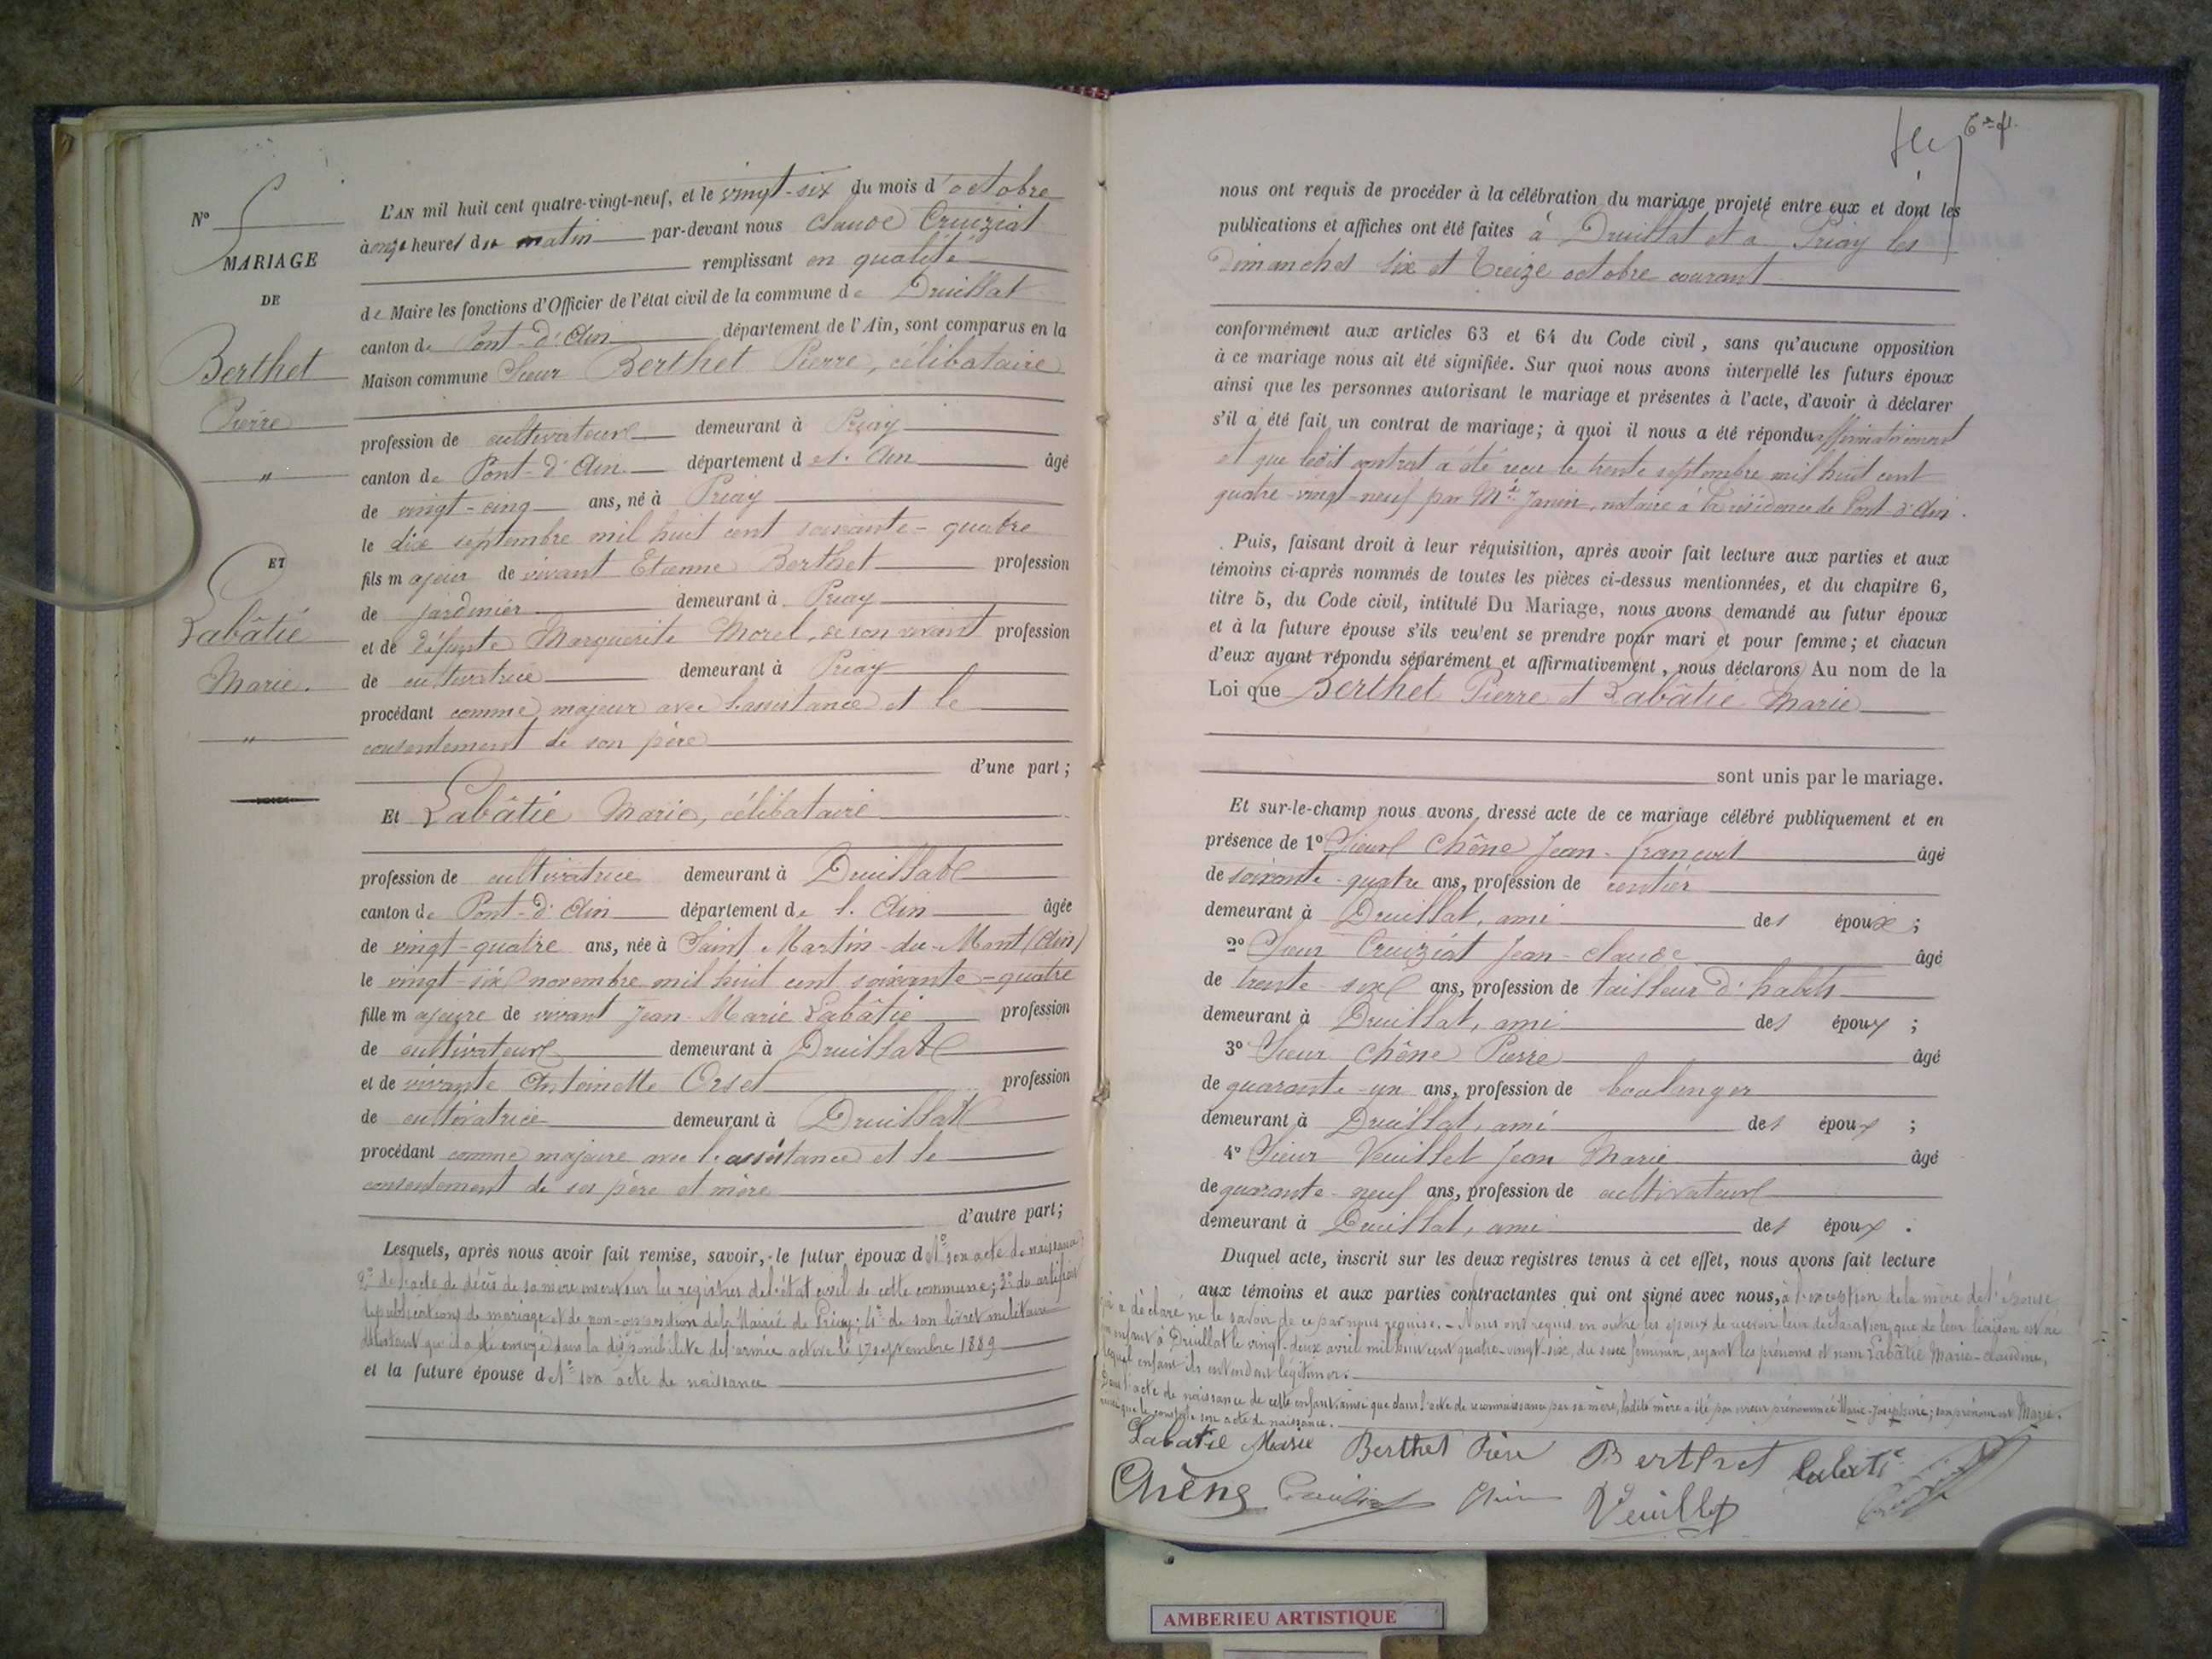 N°
MARIAGE
DE
Berthet
Pierre
"
ET
Labâtié
Marie.
"
L'AN mil huit cent quatre-vingt-neuf, et le vingt-six du mois d'octobre
à onze heures du matin par-devant nous Claude Cruiziat
remplissant en qualité
de Maire les fonctions d'Officier de l'état civil de la commune de Druillat
canton de Pont-d'Ain département de l'Ain, sont comparus en la
Maison commune Sieur Berthet Pierre, célibataire
profession de cultivateur demeurant à Priay
canton de Pont-d'Ain département de l'Ain âgé
de vingt-cinq ans, né à Priay
le dix septembre mil huit cent soixante-quatre
fils majeur de vivant Etienne Berthet profession
de jardinier demeurant à Priay
et de défunte Marguerite Morel, de son vivant profession
de cultivatrice demeurant à Priay
procédant comme majeur avec l'assistance et le
consentement de son père
d'une part;
Et Labâtié Marie, célibataire
profession de cultivatrice demeurant à Druillat
canton de Pont-d'Ain département de l'Ain âgée
de vingt-quatre ans, née à Saint-Martin-du-Mont (Ain)
le vingt-six novembre mil huit cent soixante-quatre
fille majeure de vivant Jean-Marie Labâtié profession
de cultivateur demeurant à Druillat
et de vivante Antoinette Orset profession
de cultivatrice demeurant à Druillat
procédant comme majeure avec l'assistance et le
consentement de ses père et mère
d'autre part;
Lesquels, après nous avoir fait remise, savoir, le futur époux d 1° son acte de naissance
2° de l'acte de décès de sa mère inscrit sur les registres de l'état civil de cette commune; 3° du certificat
de publications de mariage et de non-opposition de la Mairie de Priay; 4° de son livret militaire
attestant qu'il a été envoyé dans la disponibilité de l'armée active le 17 septembre 1889
et la future épouse d 1° son acte de naissance
nous ont requis de procéder à la célébration du mariage projeté entre eux et dont les
publications et affiches ont été faites à Druillat et à Priay les
Dimanches six et treize octobre courant
conformément aux articles 63 et 64 du Code civil, sans qu'aucune opposition
à ce mariage nous ait été signifiée. Sur quoi nous avons interpellé les futurs époux
ainsi que les personnes autorisant le mariage et présentes à l'acte, d'avoir à déclarer
s'il a été fait un contrat de mariage; à quoi il nous a été répondu affirmativement
et que ledit contrat a été reçu le trente septembre mil huit cent
quatre-vingt-neuf par Me Janin, notaire à la résidence de Pont d'Ain.
Puis, faisant droit à leur réquisition, après avoir fait lecture aux parties et aux
témoins ci-après nommés de toutes les pièces ci-dessus mentionnées, et du chapitre 6,
titre 5, du Code civil, intitulé Du Mariage, nous avons demandé au futur époux
et à la future épouse s'ils veulent se prendre pour mari et pour femme; et chacun
d'eux ayant répondu séparément et affirmativement, nous déclarons Au nom de la
Loi que Berthet Pierre et Labâtié Marie
sont unis par le mariage.
Et sur-le-champ nous avons dressé acte de ce mariage célébré publiquement et en
présence de 1° Sieur Chêne Jean-François âgé
de soixante-quatre ans, profession de rentier
demeurant à Druillat, ami des époux;
2° Sieur Cruiziat Jean-Claude âgé
de trente-six ans, profession de tailleur d'habits
demeurant à Druillat, ami des époux;
3° Sieur Chêne Pierre âgé
de quarante-un ans, profession de boulanger
demeurant à Druillat, ami des époux;
4° Sieur Veuillet Jean Marie âgé
de quarante-neuf ans, profession de cultivateur
demeurant à Druillat, ami des époux.
Duquel acte, inscrit sur les deux registres tenus à cet effet, nous avons fait lecture
aux témoins et aux parties contractantes qui ont signé avec nous, à l'exception de la mère de l'épouse
qui a déclaré ne le savoir de ce par nous requise. - Nous ont requis en outre les époux de recevoir leur déclaration que de leur liaison est né
un enfant à Druillat le vingt-deux avril mil huit cent quatre-vingt-six, du sexe féminin, ayant les prénoms et nom Labâtié Marie-Claudine,
lequel enfant ils entendent légitimer.
Dans l'acte de naissance de cette enfant ainsi que dans l'acte de reconnaissance par sa mère, ladite mère a été par erreur prénommée Marie-Joséphine; son prénom est Marie.
ainsi que le constate son acte de naissance.
Labatie Marie Berthet Pière Berthet Labatié
Chêne Cruiziat Chêne Veuillet
AMBERIEU ARTISTIQUE